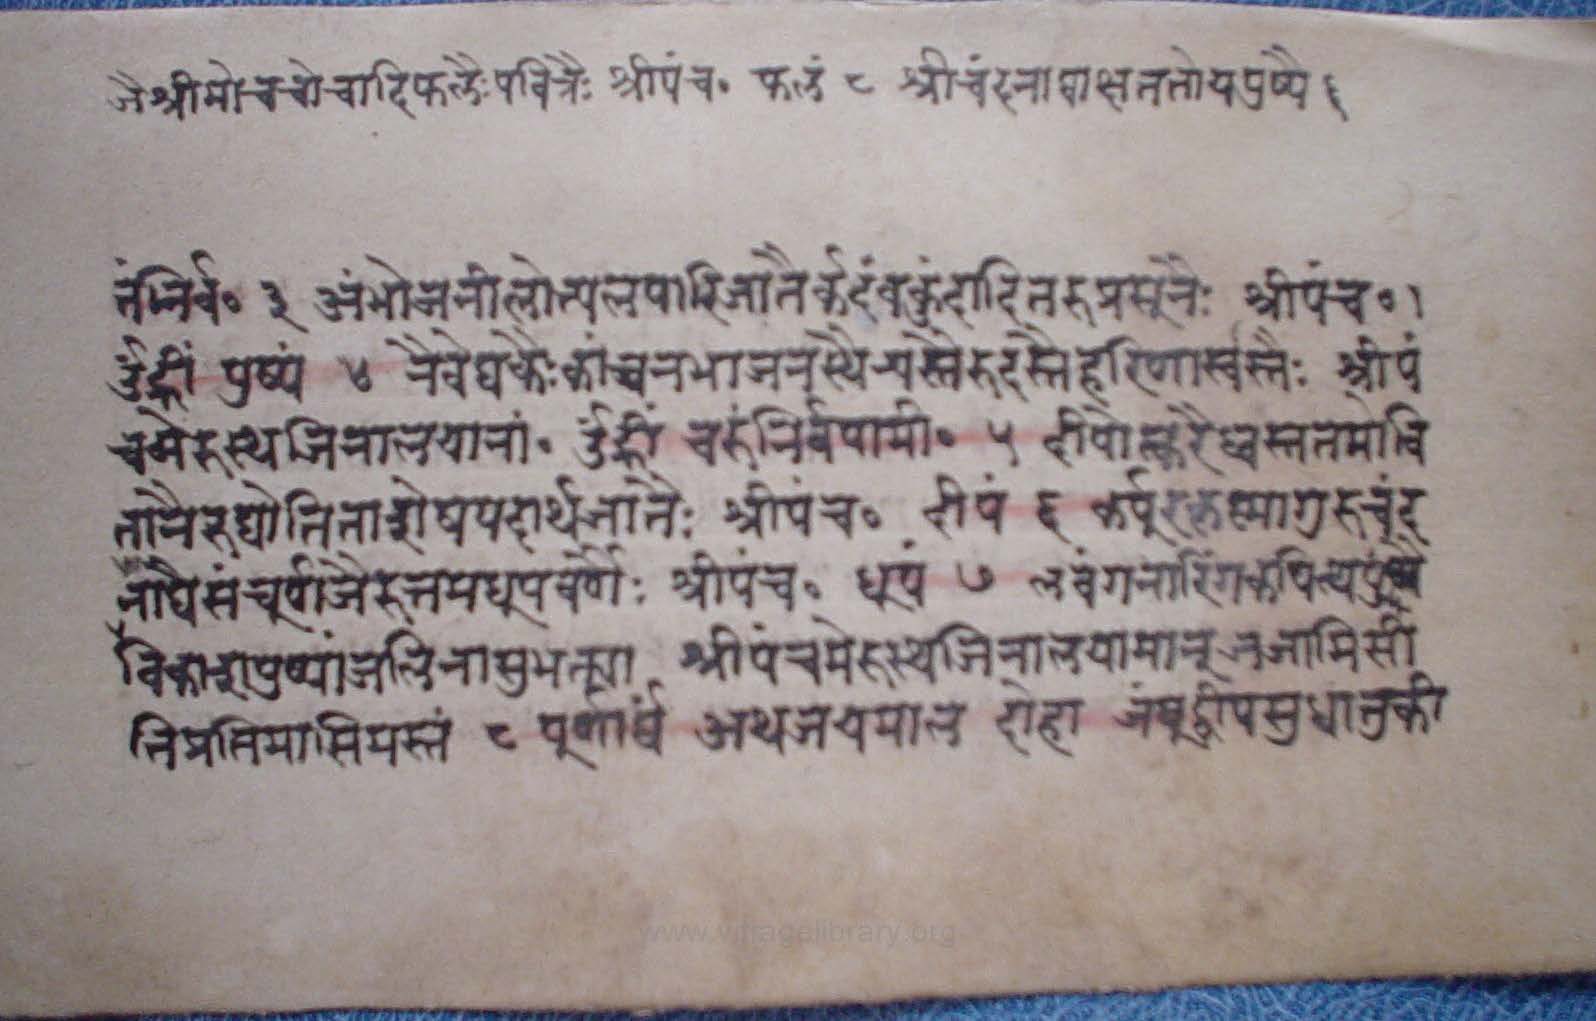 जैश्रीमोचचोचादिफलैःपवित्रैः श्रीपंच॰ फलं ८ श्रीचंदनाद्याक्षततोयपुष्पै ६
तंनिर्व॰ ३ अंभोजनीलोत्पलपारिजातैर्कदंवकुंदादितरुप्रसूनैः श्रीपंच॰।
उँह्रीं पुष्पं ४ नैवेद्यकैःकांचनभाजनस्थैर्न्यस्तैरुदस्तैर्हरिणास्वस्तैः श्रीपं
चमेरुस्थजिनालयानां॰ उँह्रीं चरुंनिर्वपामी॰ ५ दीपोत्करैर्ध्वस्ततमोवि
तानैरुद्योतिताशेषपदार्थजातैः श्रीपंच॰ दीपं ६ कर्पूरकृष्मागुरुचूंद
नाद्यैसंचूर्णजैरुत्तमधूपवर्णैः श्रीपंच॰ धूपं ७ लवंगनारिंगकपित्थपुंगै
विकाशपुष्पांजलिनासुभक्त्या श्रीपंचमेरुस्थजिनालयामान् जजामिसी
तिप्रतिमासिमस्तं ८ पूर्णार्घं अथजयमाल दोहा जंबूद्वीपसुधातुकी
www.vitragelibrary.org